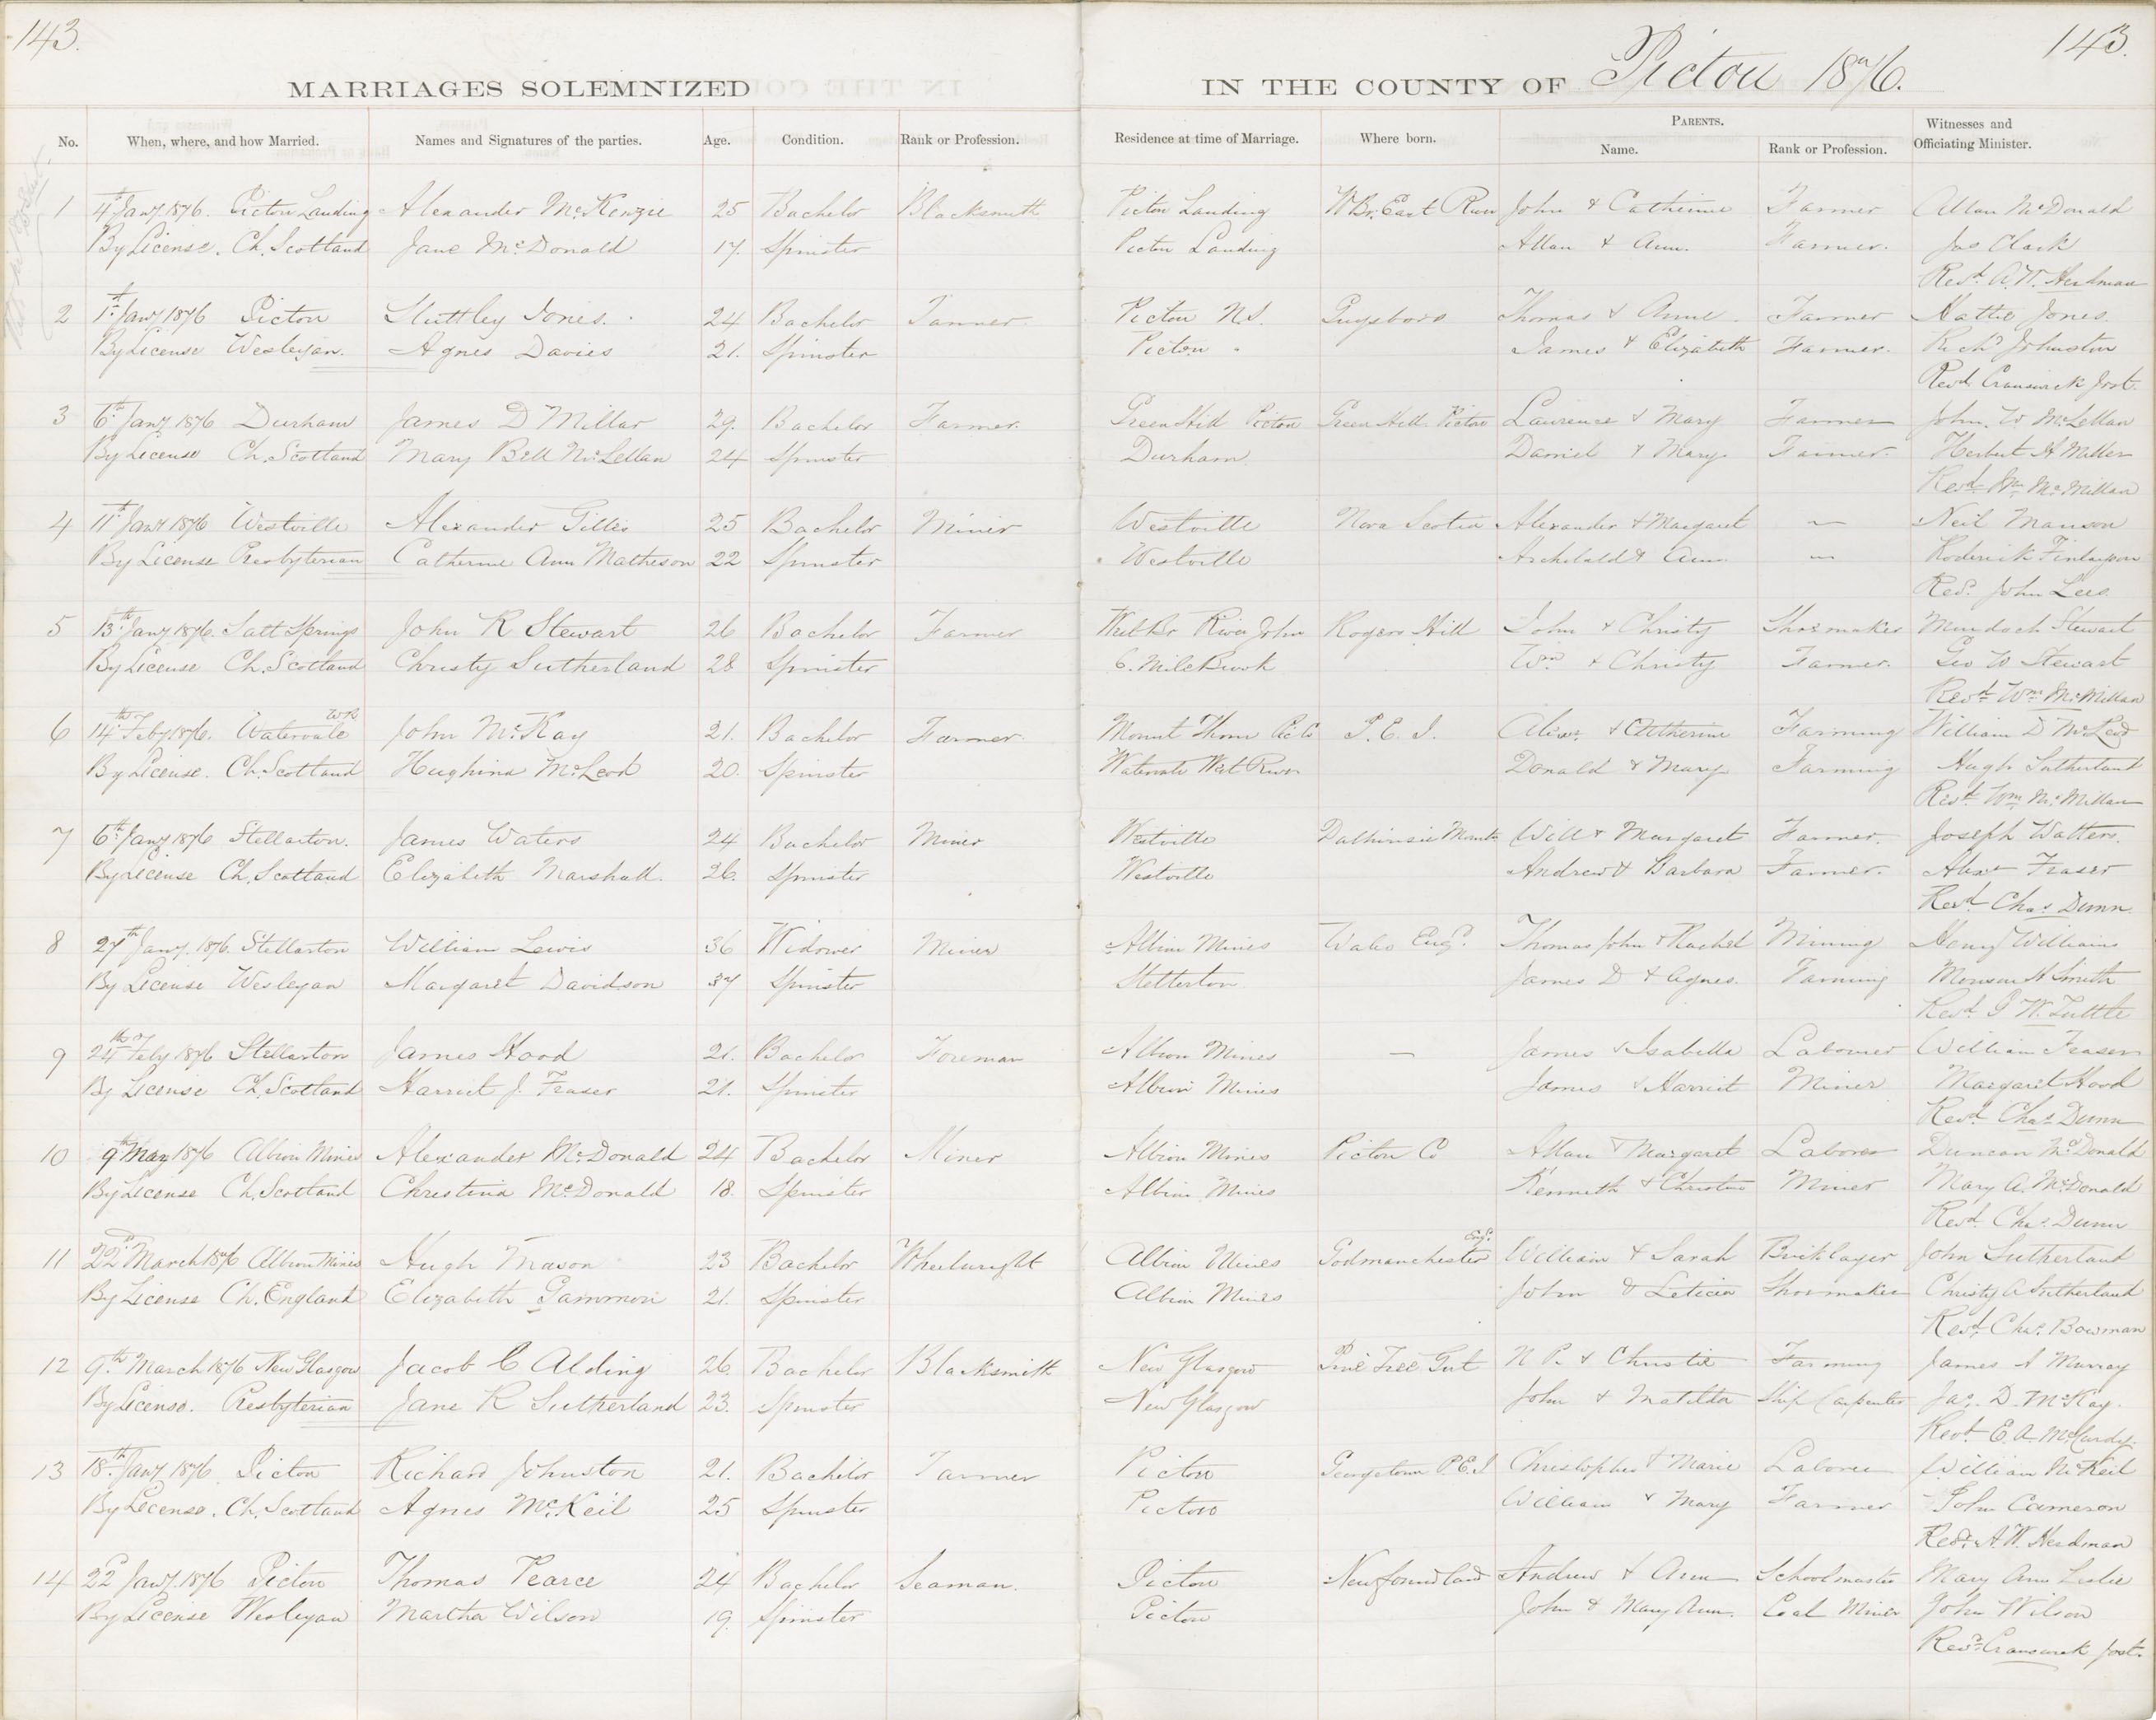 143.
143.
MARRIAGES SOLEMNIZED IN THE COUNTY OF Pictou 1876.
No. When, where, and how Married. Names and Signatures of the parties. Age. Condition. Rank or Profession. Residence at time of Marriage. Where born. PARENTS. Name. Rank or Profession. Witnesses and Officiating Minister.
1 4th Jany 1876. Pictou Landing Alexander McKenzie 25 Bachelor Blacksmith Pictou Landing W Br. East River John & Catherine Farmer Allan McDonald
By License. Ch. Scotland Jane McDonald 17. Spinster Pictou Landing Allan & Ann. Farmer. Jas Clark
Revd. A. W. Herdman
2 1st Jany 1876 Pictou Jones. 24 Bachelor Tanner Pictou N.S. Guysboro Thomas & Anne Farmer Hattie Jones.
By License Wesleyan. Agnes Davies 21. Spinster Pictou " James & Elizabeth Farmer. Richd Johnston
Revd Cranswick Jost.
3 6th Jany 1876 Durham James D Millar 29. Bachelor Farmer. Green Hill Pictou Green Hill Pictou Lawrence & Mary Farmer John. W McLellan
By License Ch. Scotland Mary Bell McLellan 24 Spinster Durham Daniel & Mary Farmer. Herbert A Miller
Revd. Wm McMillan
4 11th Jany 1876 Westville Alexander Gillis 25 Bachelor Miner Westville Nova Scotia Alexander & Margaret — Neil Manson
By License Presbyterian Catherine Ann Matheson 22 Spinster Westville Archibald & Ann. — Roderick Finlayson
Revd. John Lees
5 13th Jany 1876. Salt Springs John R Stewart 26 Bachelor Farmer West Br River John Rogers Hill John & Christy Shoemaker Murdoch Stewart
By License Ch. Scotland Christy Sutherland 28 Spinster 6. Mile Brook Wm & Christy Farmer. Geo W Stewart
Revd. Wm McMillan
6 14th Feby 1876. Watervale WR John McKay 21. Bachelor Farmer. Mount Thom Pic Co P. E. I. Alexr. & Catherine Farming William D McLeod
By License. Ch. Scotland Hughina McLeod 20. Spinster Watervale West River Donald & Mary Farming Hugh Sutherland
Revd. Wm McMillan
7 6th Jany 1876 Stellarton. James Waters 24 Bachelor Miner Westville Dalhousie Mount Will & Margaret Farmer. Joseph Watters.
By License Ch. Scotland Elizabeth Marshall. 26. Spinster Westville Andrew & Barbara Farmer. Alexr Fraser
Revd. Chas Dunn
8 27th Jany. 1876. Stellarton William Lewis 36 Widower Miner Albion Mines Wales Engd. Thomas John & Rachel Mining Henry Williams
By License Wesleyan Margaret Davidson 37 Spinster Stellerton James D & Agnes. Farming H Smith
Revd. W. Tuttle
9 24th Feby 1876 Stellarton James Hood 21. Bachelor Foreman Albion Mines — James & Isabella Labourer William Fraser
By License Ch. Scotland Harriet J. Fraser 21. Spinster Albion Mines James & Harriet Miner Margaret Hood
Revd. Chas Dunn
10 9th May 1876 Albion Mines Alexander McDonald 24 Bachelor Miner Albion Mines Pictou Co Allan & Margaret Laborer Duncan McDonald
By License Ch. Scotland Christina McDonald 18. Spinster Albion Mines Kenneth & Christine Miner Mary A. McDonald
Revd. Chas. Dunn
11 22nd March 1876 Albion Mines Hugh Mason 23 Bachelor Wheelwright Albion Mines Godmanchester Engd. William & Sarah Bricklayer John Sutherland
By License Ch. England Elizabeth Gammon 21. Spinster Albion Mines John & Leticia Shoemaker Christy A Sutherland
Revd. Chas. Bowman
12 9th March 1876 New Glasgow Jacob C Alding 26. Bachelor Blacksmith New Glasgow Pine Tree Gut N P. & Christie Farming James A Murray
By License. Presbyterian Jane R Sutherland 23. Spinster New Glasgow John & Matilda Ship Carpenter Jas. D. McKay.
Revd. E. A. McCurdy.
13 18th Jany 1876 Pictou Richard Johnston 21. Bachelor Tanner Pictou Georgetown P.E.I Christopher & Marie Laborer William McKeil
By License. Ch. Scotland Agnes McKeil 25 Spinster Pictou William & Mary Farmer John Cameron
Revd. A. W. Herdman
14 22d Jany. 1876 Pictou Thomas Pearce 24 Bachelor Seaman. Pictou Newfoundland Andrew & Ann Schoolmaster Mary Ann Leslie
By License Wesleyan Martha Wilson 19. Spinster Pictou John & Mary Ann. Coal Miner John Wilson
Revd. Cranswick Jost.